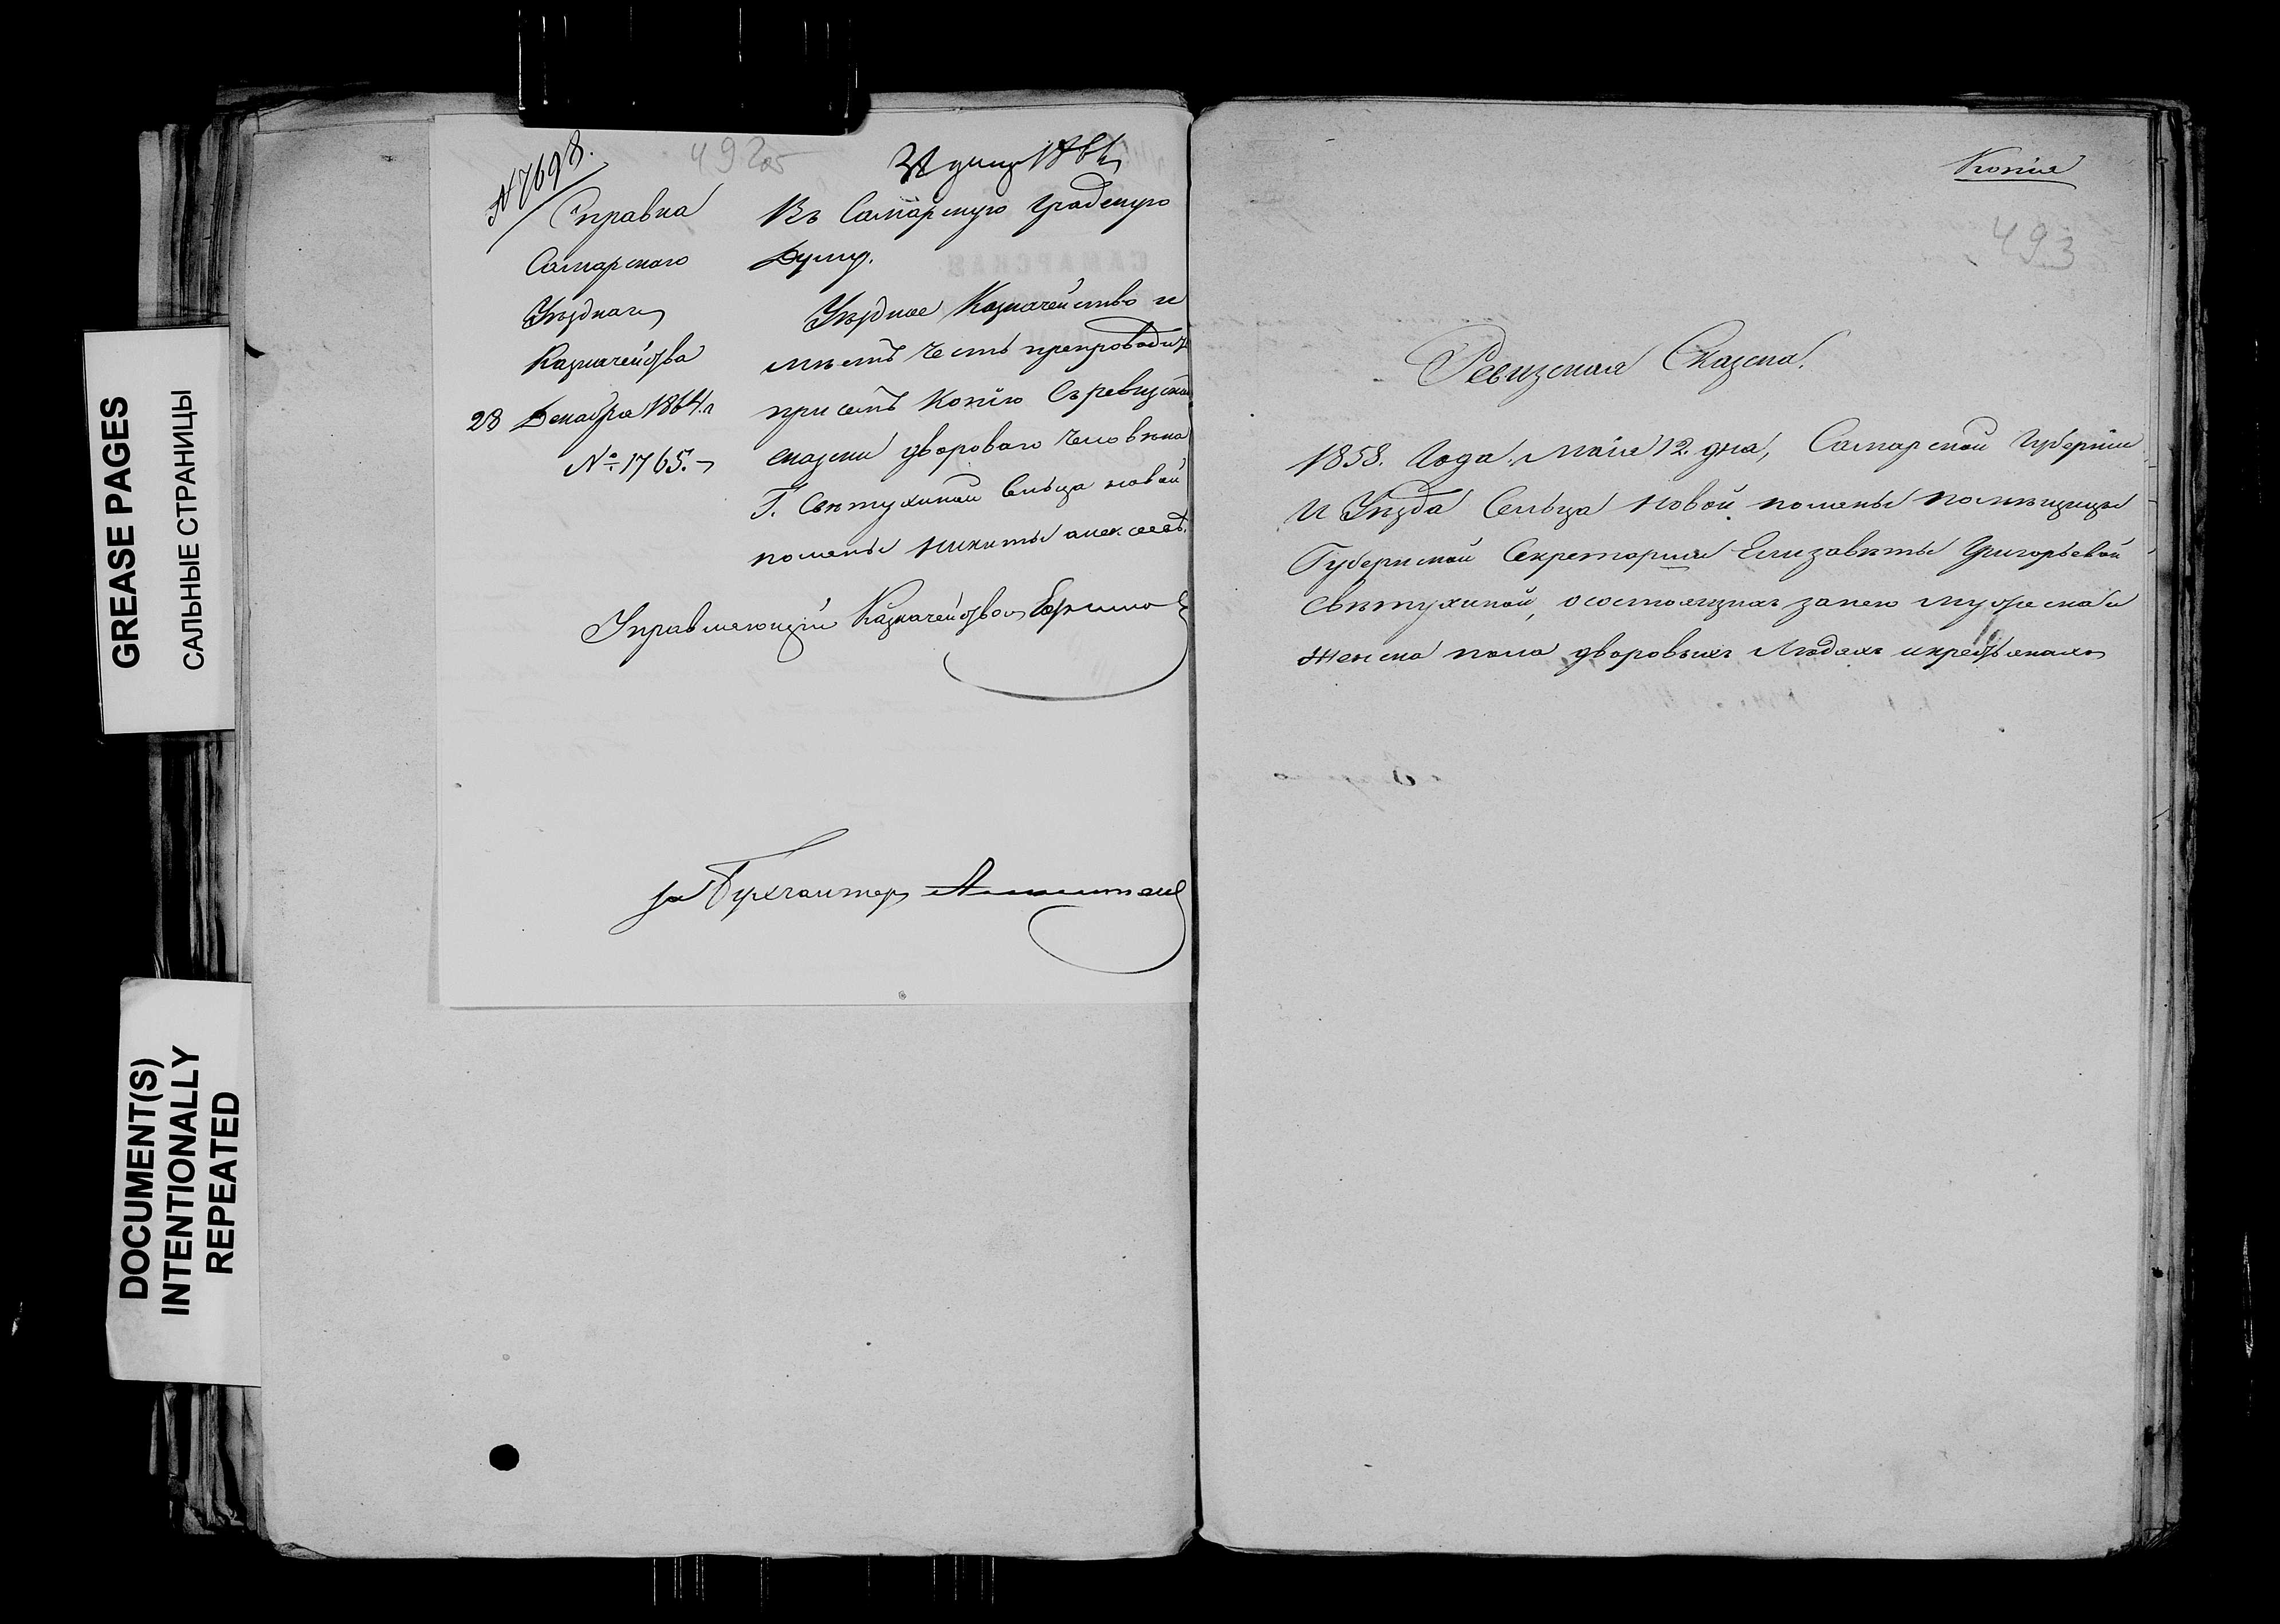 GREASE PAGES
САЛЬНЫЕ СТРАНИЦЫ
DOCUMENT(S)
INTENTIONALLY
REPEATED
№ 7698.
492
Справка
Самарского
Уѣзднаго
Казначейства
28 Декабря 1864 г
№ 1765.
31 1864
Въ Самарскую Градскую
Думу.
Уѣздное Казначейство и
мѣетъ честь препроводить
при семъ копію съ ревизской
сказки двороваго человѣка
Г. Свѣтухиной Сельца новой
поляны Никиты Алексеев.
Управляющій Казначействомъ
за Бухгалтер
Копія
493
Ревизская Сказка.
1858. Года. Маія 12. дня, Самарской Губерніи
и Уѣзда Сельца Новой поляны помѣщицы
Губернской Секретарши Елизавѣты Григорьевой
Свѣтухиной, о состоящихъ за нею мужеска и
женска пола дворовыхъ людяхъ и крестьянахъ